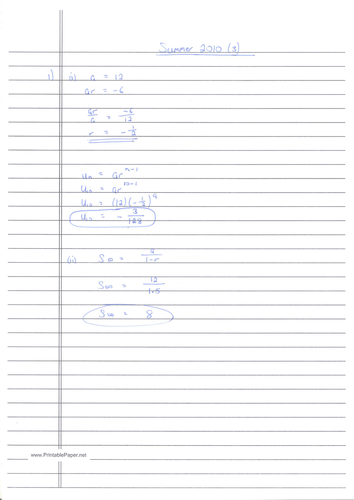 Summer 2010 (3)
1) i) a = 12
ar = -6
ar/a = -6/12
r = -1/2
uₙ = ar^(n-1)
u₁₀ = ar^(10-1)
u₁₀ = (12)(-1/2)^9
u₁₀ = -3/128
(ii) S∞ = a/(1-r)
S∞ = 12/1.5
S∞ = 8
www.PrintablePaper.net